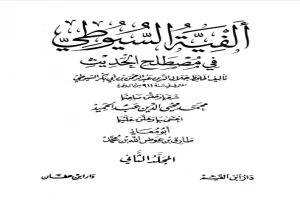 ألفية السيوطي
في مصطلح الحديث
تأليف الحافظ جلال الدين عبد الرحمن بن أبي بكر السيوطي
المتوفى سنة ٩١١
محمد محي الدين عبد الحميد
أبو معاذ
طارق بن عوض الله بن محمد
المجلد الثاني
دار ابن القيم
دار ابن عفان